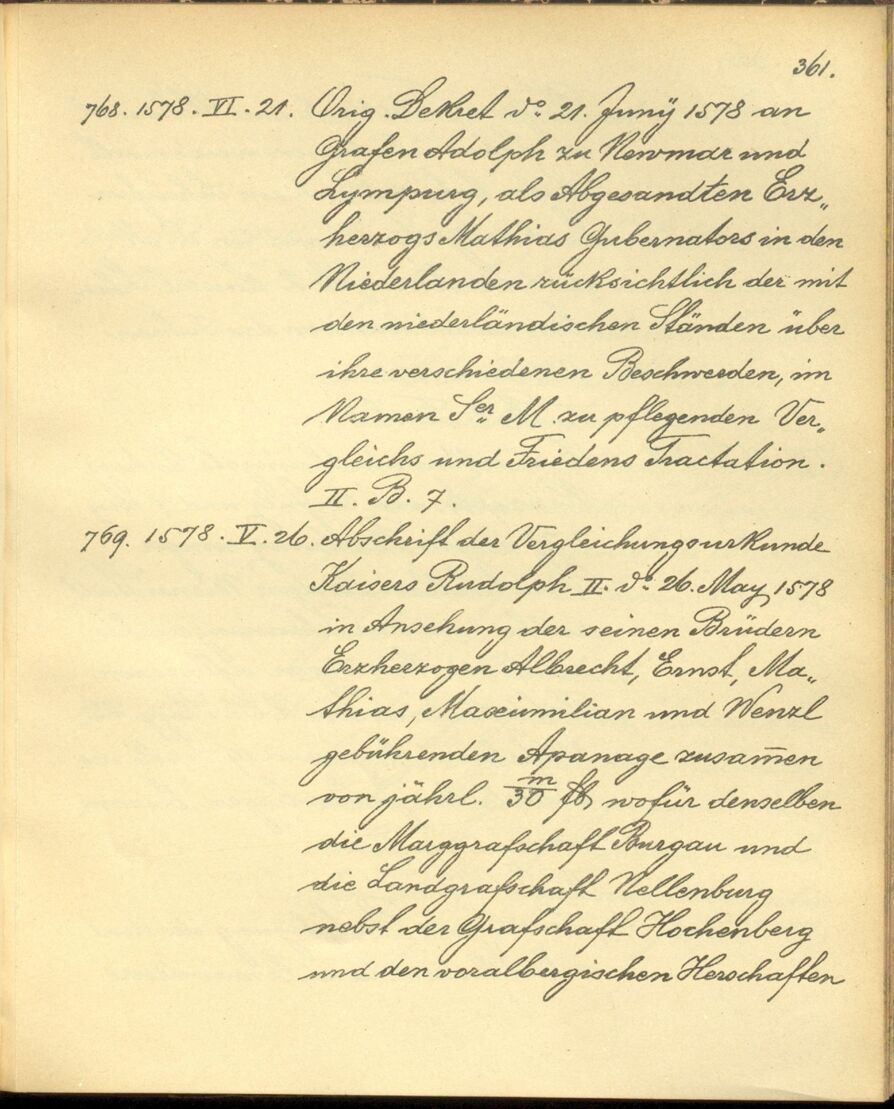 361.
768. 1578. VI. 21. Orig. Dekret do 21. Junÿ 1578 an
Grafen Adolph zu Newmar und
Lympurg, als Abgesandten Erz„
herzogs Mathias Gubernators in den
Niederlanden rücksichtlich der mit
den niederländischen Ständen über
ihre verschiedenen Beschwerden, im
Namen Ser M. zu pflegenden Ver„
gleichs und Friedens Tractation.
II. B. 7.
769. 1578. V. 26. Abschrift der Vergleichungsurkunde
Kaisers Rudolph II. do 26. May 1578
in Ansehung der seinen Brüdern
Erzherzogen Albrecht, Ernst, Ma„
thias, Maxiumilian und Wenzl
gebührenden Apanage zusam̅en
von jährl. m/30 fl wofür denselben
die Marggrafschaft Burgau und
die Landgrafschaft Nellenburg
nebst der Grafschaft Hochenberg
und den voralbergischen Herschaften